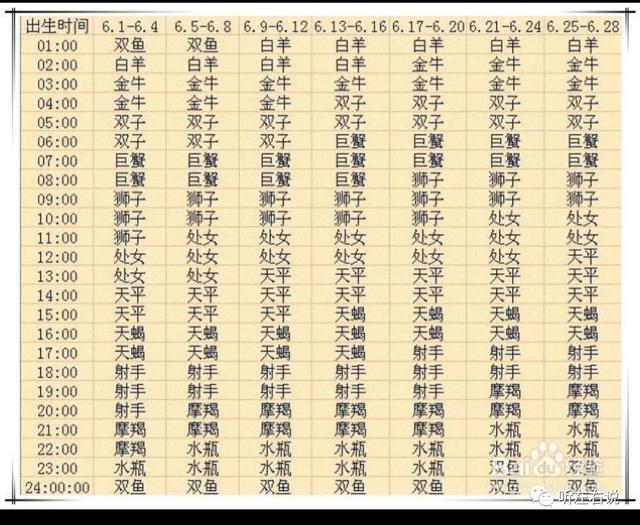 出生时间 6.1-6.4 6.5-6.8 6.9-6.12 6.13-6.16 6.17-6.20 6.21-6.24 6.25-6.28
01:00 双鱼 双鱼 白羊 白羊 白羊 白羊 白羊
02:00 白羊 白羊 白羊 白羊 金牛 金牛 金牛
03:00 金牛 金牛 金牛 金牛 金牛 金牛 金牛
04:00 金牛 金牛 金牛 双子 双子 双子 双子
05:00 双子 双子 双子 双子 双子 双子 双子
06:00 双子 双子 双子 巨蟹 巨蟹 巨蟹 巨蟹
07:00 巨蟹 巨蟹 巨蟹 巨蟹 巨蟹 巨蟹 巨蟹
08:00 巨蟹 巨蟹 巨蟹 巨蟹 狮子 狮子 狮子
09:00 狮子 狮子 狮子 狮子 狮子 狮子 狮子
10:00 狮子 狮子 狮子 狮子 狮子 处女 处女
11:00 狮子 处女 处女 处女 处女 处女 处女
12:00 处女 处女 处女 处女 处女 处女 天平
13:00 处女 处女 天平 天平 天平 天平 天平
14:00 天平 天平 天平 天平 天平 天平 天平
15:00 天平 天平 天平 天蝎 天蝎 天蝎 天蝎
16:00 天蝎 天蝎 天蝎 天蝎 天蝎 天蝎 天蝎
17:00 天蝎 天蝎 天蝎 天蝎 射手 射手 射手
18:00 射手 射手 射手 射手 射手 射手 射手
19:00 射手 射手 射手 射手 射手 摩羯 摩羯
20:00 射手 摩羯 摩羯 摩羯 摩羯 摩羯 摩羯
21:00 摩羯 摩羯 摩羯 摩羯 摩羯 水瓶 水瓶
22:00 摩羯 水瓶 水瓶 水瓶 水瓶 水瓶 水瓶
23:00 水瓶 水瓶 水瓶 水瓶 水瓶 双鱼 双鱼
24:00:00 双鱼 双鱼 双鱼 双鱼 双鱼 双鱼 双鱼
听左右说